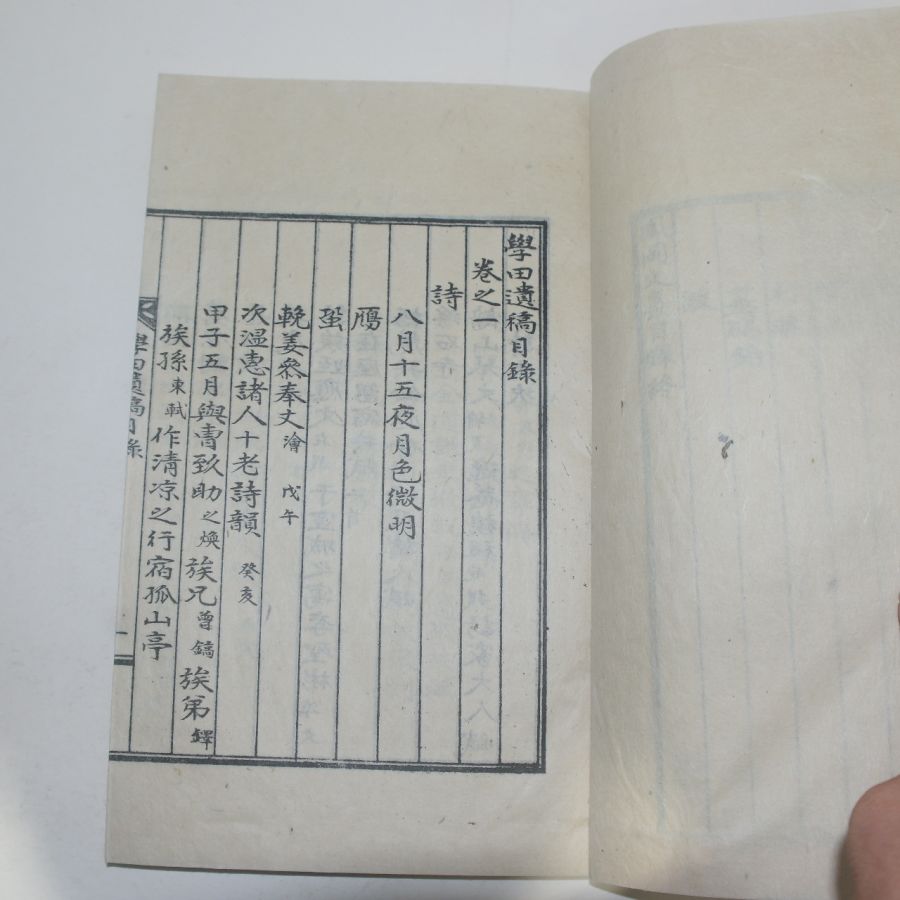 學田遺稿目錄
卷之一
詩
八月十五夜月色微明
鴈
蛩
輓姜叅奉丈 濬 戊午
次溫惠諸人十老詩韻 癸亥
甲子五月與曺致助 之煥 族兄 曾鎬 族弟 鐸
族孫 東軾 作清凉之行宿孤山亭
學田遺稿目錄 一